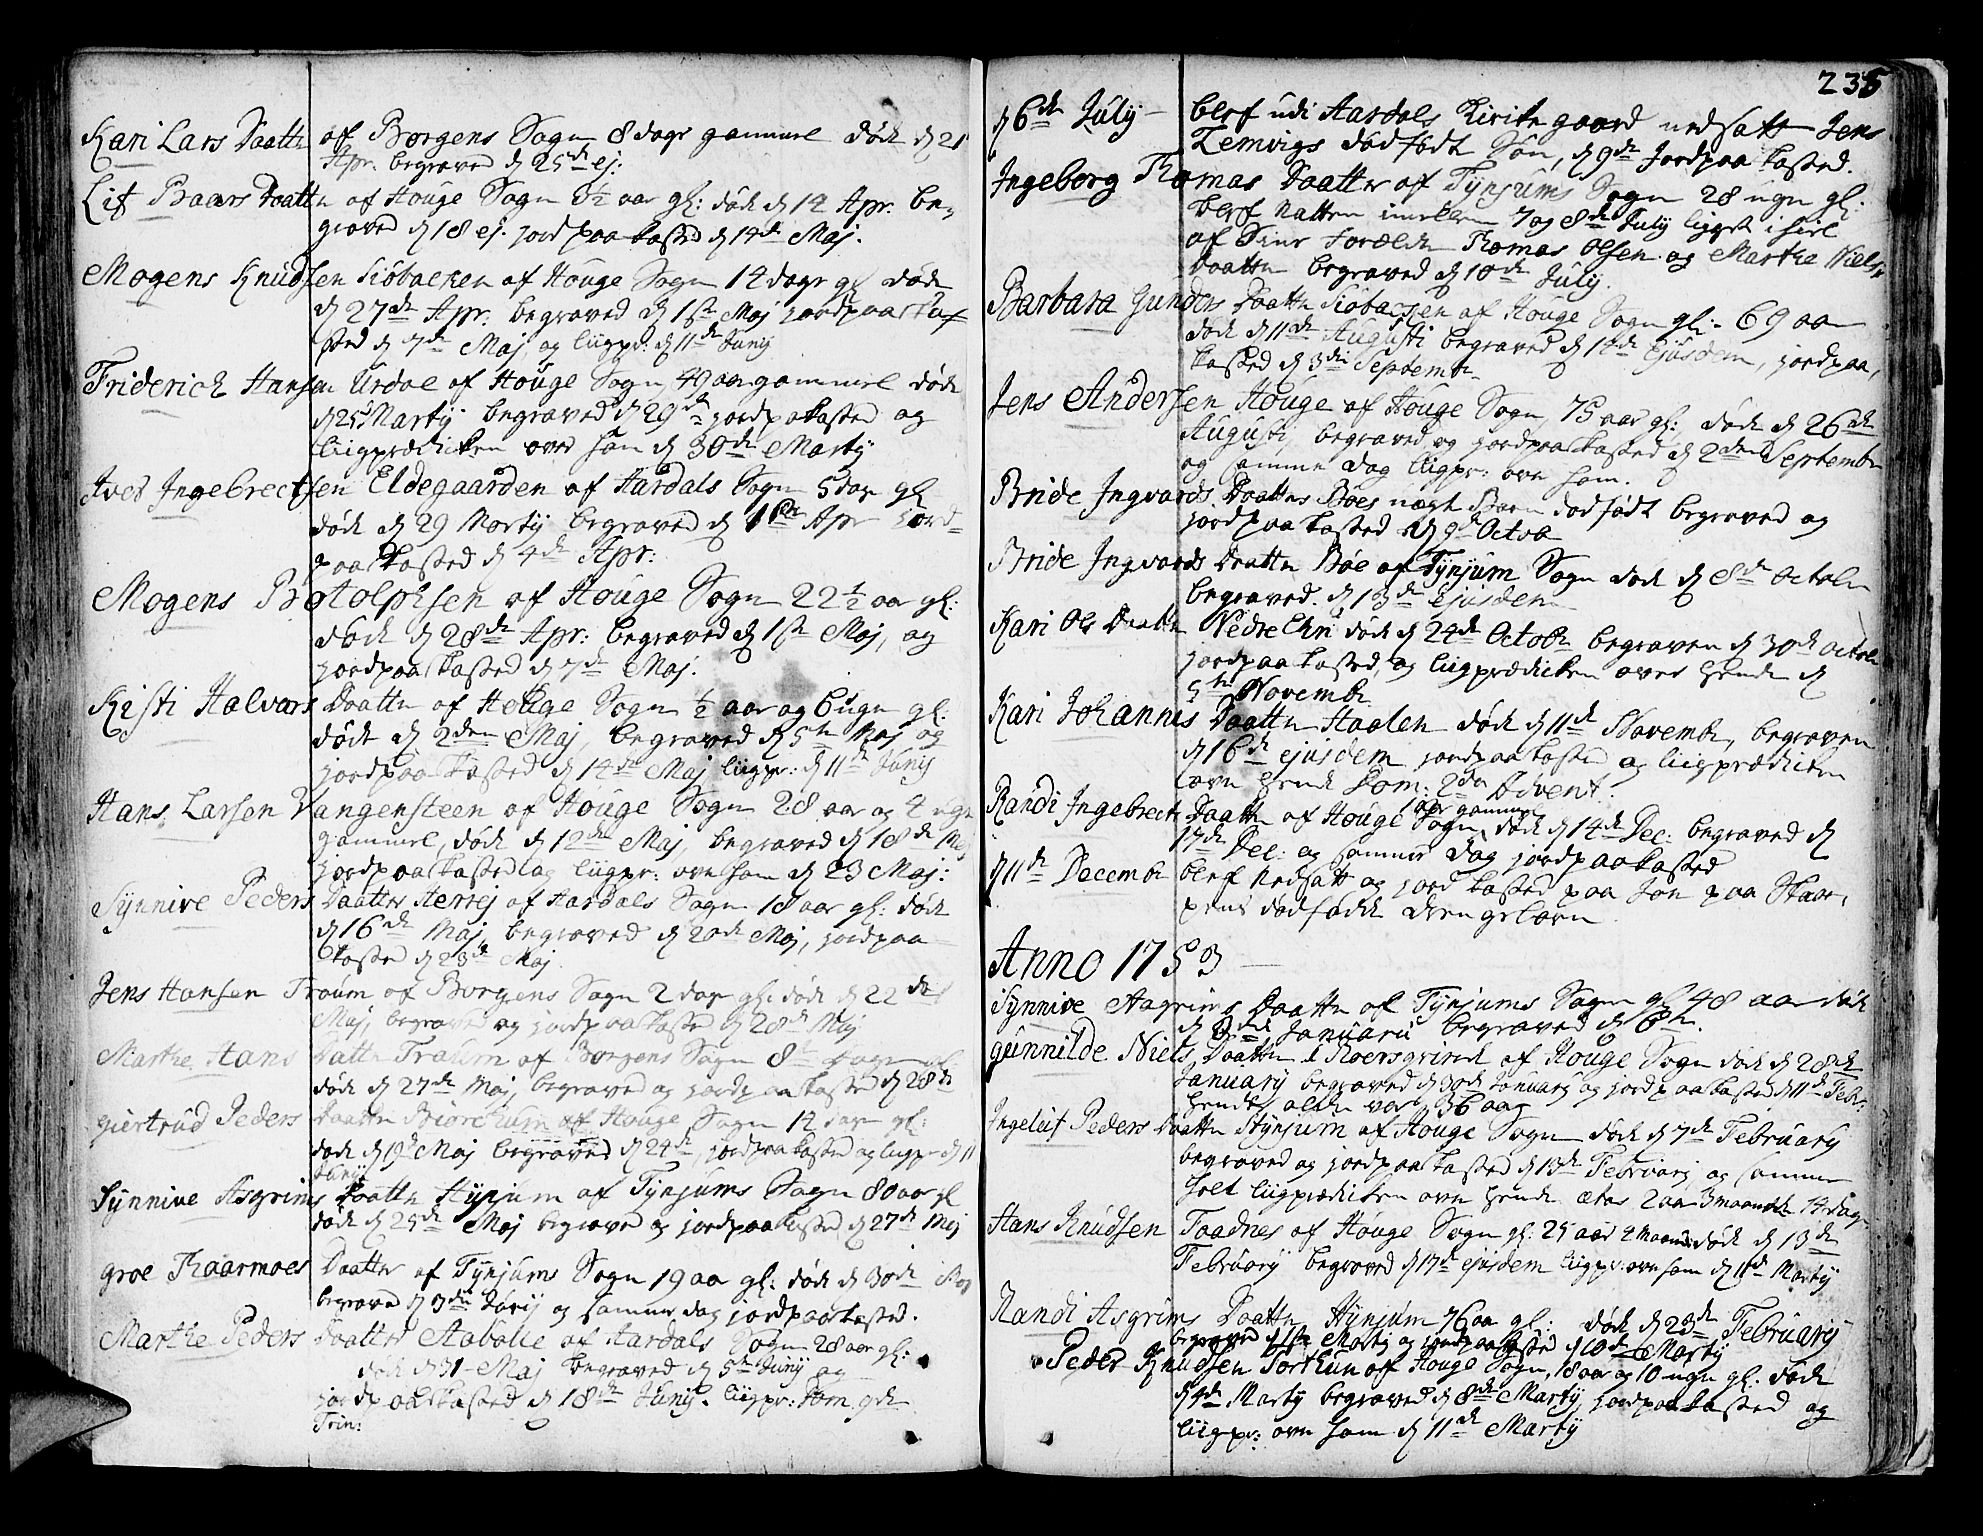 Kari Lars Daatter af Borgens Sogn 8 dage gammel døde d 21
Apr. begraved d 25de ej:
Lit Baars Daatter af Houge Sogn aar gl: døde d 14 Apr. be-
graved d 18 ej. jordpaakasted d 14de Maj.
Mogens Knudsen af Houge Sogn 14 dage gl døde
d 27de Apr: begraved d 1ste Maj jordpaaka
sted d 7de Maj og liigpr: d 11de Junij
Friderich Hansen Urdal af Houge Sogn 49 aar gammel døde
d 25 Martij begraved d 29 jordpaakasted og
liigprædiken over ham d 30de Martij
Iver Ingebrectsen Eldegaarden af Aardals Sogn 5 dage gl
døde d 29 Martij begraved d 1ste Apr jord-
paakasted d 4de Apr:
Mogens Botolphsen af Houge Sogn 22 1/2 aar gl:
døde d 28de Apr: begraved d 1ste Maj, og
jordpaakasted d 7de Maj.
Kisti Halvors Daatter af Houge Sogn 1/2 aar og 6 ugr gl:
døde d 2den Maj, begraved d 5te Maj og
jordpaakasted d 14de Maj liigpr: d 11de Junij
Hans Larsen Vangensteen af Houge Sogn 28 aar og 4 ugr
gammel, døde d 12de Maj, begraved d 18de Maj
jordpaakasted og liigpr: over ham d 23 Maj:
Synnive Peders Daatter af Aardals Sogn 18 aar gl: døde
d 16de Maj, begraved d 20de Maj, jordpaa
kasted d 23de Maj.
Jens Hansen Traum af Borgens Sogn 2 dage gl: døde d 22de
Maj, begraved og jordpaakasted d 28de Maj
Marthe Hans Datter Traum af Borgens Sogn 8 dage gl
døde d 27de Maj, begraved og jordpaakasted d 28de
Giertrud Peders Daatter af Houge Sogn 12 dage gl:
døde d 19de Maj begraved d 24de, jordpaakasted og liigpr d 11
Junij
Synnive Asgrims Daatter Hynjum af Tynjums Sogn 80 aar gl
døde d 25de Maj begraved og jordpaakasted d 27de Maj
Groe Thaarmoes Daatter af Tynjums Sogn 19 aar gl: døde d 30de Maj
begraved d 3die Junij og samme dag jordpaakasted.
Marthe Peders Daatter af Aardals Sogn 28 aar gl:
døde d 31 Maj begraved d 5te Junij og
jordpaakasted d 18de Junij. liigpr: Dom 9de
Trin:
235
d 6de July blef udi Aardals Kirkegaard nedsatt Jens
Lemvigs dødfødt Søn, d 9de Jordpaakasted.
Ingeborg Thomas Daatter af Tynjums Sogn 28 ugr gl:
blef Natten imellem 7 og 8de July ligget ihiel
af Sine Forældre Thomas Olsen og Marthe Niels
Daatter begraved d 10de July.
Barbara Gunders Daatter af Houge Sogn gl: 69 aar
døde d 11de Augusti begraved d 14de Ejusdem, jordpaa,
kasted d 3die Septembr
Jens Andersen Houge af Houge Sogn, 75 aar gl: døde d 26de
Augusti, begraved og jordpaakasted d 2den Septembr
og samme Dag liigpr: over ham.
Bride Ingvards Daatters Bøes Barn dødfødt begraved og
jordpaakasted d 9de Octob
Bride Ingvards Daatter Bøe af Tynjum Sogn døde d 8de Octobr
begraved d 13de Ejusdem
Kari Ols Daatter Nedre døde d 24de Octobr begraven d 30de Octobr
jordpaakasted, og liigprædiken over hende d
5te Novembr
Kari Johannes Daatter Haalen døde d 11de Novembr, begraven
d 16de ejusdem jordpaakasted og liigprædiken
over hende Dom: 2da Advent.
Randi Ingebrects Daatter af Houge Sogn, 1 aar gammel døde d 14de Dec: begraved d
17de Dec: og samme Dag jordpaakasted
d 11de Decembr blef Nedsatt og jord kasted paa Jon paa Skaar,
pens dødfødde drengebarn.
Anno 1753
Synnive Aagrims Daatter af Tynjums Sogn gl 48 aar døde
d 3die Januarii begraved d 6te.
Gunnilde Niels Daatter af Houge Sogn døde d 28de
January begraved d 30de January og jordpaakasted d 11de Febr:
hendes alder var 36 aar
Ingelef Peders Daatter Hynjum af Houge Sogn døde d 7de February
begraved og jordpaakasted d 13de February og samme
holt liigprædiken over hende ætas 2 aar 3 maaneder 14 dage
Hans Knudsen Taadnes af Houge Sogn gl: 25 aar 4 Maaned døde d 13de
February begraved d 17de ejusdem liigpr: over ham d 11de Martij
Randi Asgrims Daatter Hynjum 76 aar gl: døde d 23de February
begraved d 1ste Martij og jordpaakasted d 10de Martij
Peder Knudsen Torkun af Houge Sogn, 18 aar og 10 ugr gl: døde
d 4de Martij begraved d 8de Martij, jordpaakasted og
liigpr: over ham d 11de Martij